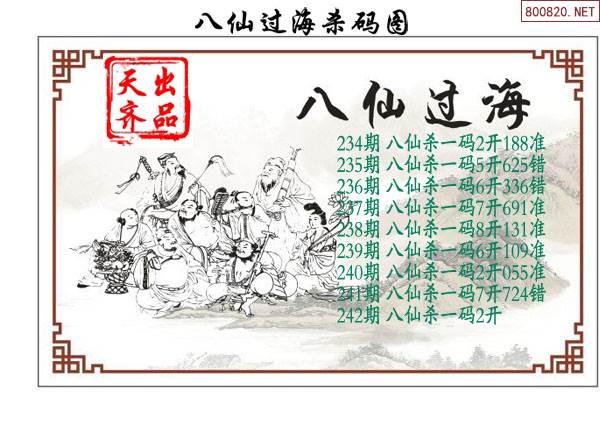 八仙过海杀码图
800820.NET
天齐
出品
八仙过海
234期 八仙杀一码2开188准
235期 八仙杀一码5开625错
236期 八仙杀一码6开336错
237期 八仙杀一码7开691准
238期 八仙杀一码8开131准
239期 八仙杀一码6开109准
240期 八仙杀一码2开055准
241期 八仙杀一码7开724错
242期 八仙杀一码2开